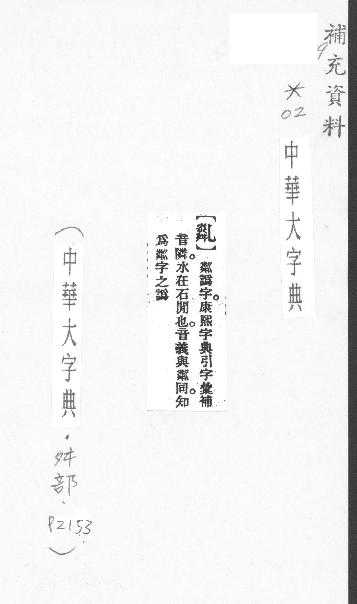 補充資料
9
*
02
中華大字典
【】粼譌字。康熙字典引字彙補
音隣。水在石閒也。音義與粼同。知
爲粼字之譌
(中華大字典.舛部.P2153.)